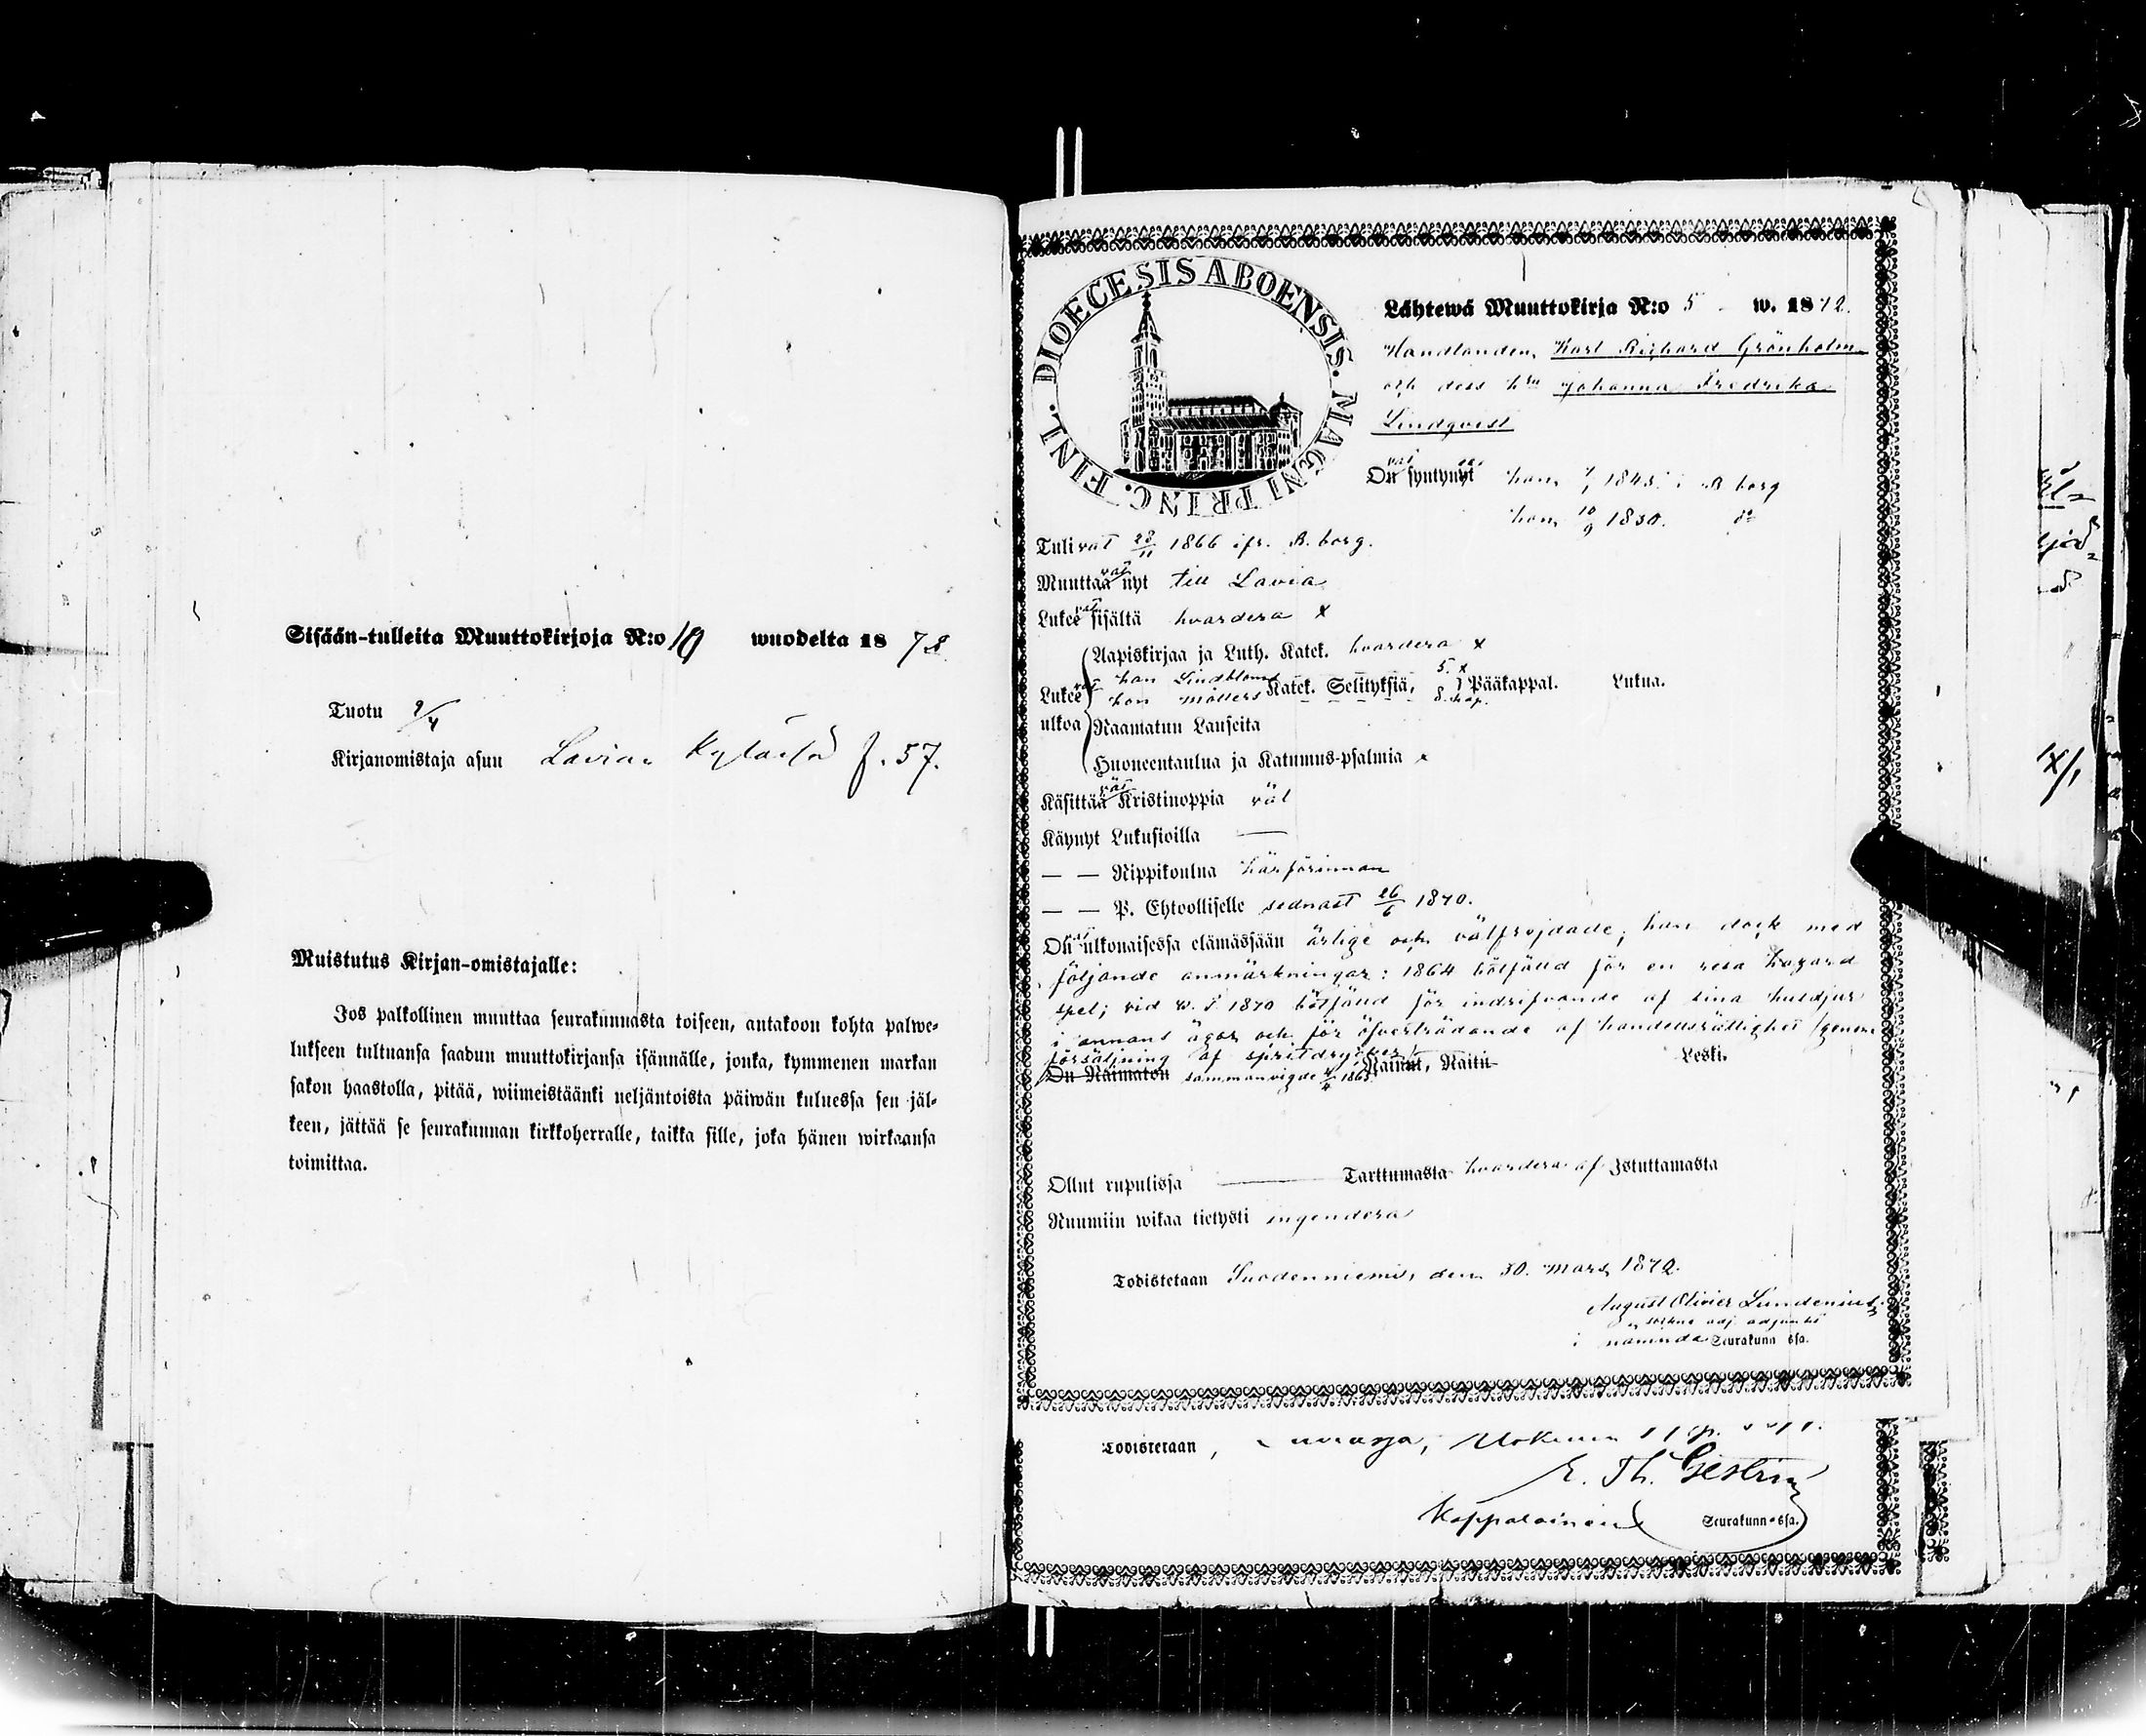 Sisään-tulleita Muuttokirjoja N:o 19 wuodelta 1872
Tuotu 9/4
Kirjanomistaja asuu Lavian Kylässä f. 57.
Muistutus Kirjan-omistajalle:
Jos palkollinen muuttaa seurakunnasta toiseen, antakoon kohta palwe-
lukseen tultuansa saadun muuttokirjansa isännälle, jonka, kymmenen markan
sakon haastolla, pitää, wiimeistäänki neljäntoista päiwän kuluessa sen jäl-
keen, jättää se seurakunnan kirkkoherralle, taikka sille, joka hänen wirkaansa
toimittaa.
DIOECESIS ABOENSIS. MAGNI PRINC. FINL.
Lähtewä Muuttokirja N:o 5. w. 1872.
Handlanden Karl Richard Grönholm
och dess h:ru Johanna Fredrika
Lindqvist
Ovat syntynyt han 1/1 1845 i B borg
hon 10/9 1830. d:o
Tulivat 28/11 1866 ifr. B. borg.
Muuttaavat nyt till Lavia
Lukevat sisältä hvardera x
Aapiskirjaa ja Luth. Katek. hvardera x
Lukevat ulkoa han Lindbloms 5. x
hon Möllers Katek. Selityksiä, 5 kap. Pääkappal. Lukua.
Raamatun Lauseita
Huoneentaulua ja Katumus-psalmia x
Käsittäävät Kristinoppia väl
Käynyt Lukusioilla —
— — Rippikoulua härförinnan
— — P. Ehtoolliselle sednast 26/6 1870.
Ovat ulkonaisessa elämässään ärlige och välfrejdade, han dock med
följande anmärkningar: 1864 bötfälld för en resa hazard
spel; vid w. t. 1870 bötfälld för indrifvande af sina husdjur
i annans ägor och för öfverträdande af handelsrättighet (genom
försäljning af spritdrycker).
On Naimaton sammanvigde 4/4 1865. Nainut, Naitu Leski.
Ollut rupulissa — Tarttumasta hvardera af Istuttamasta
Ruumiin wikaa tietysti ingendera
Todistetaan Suodenniemi, den 30. Mars 1872.
August Olivier Lundenius
adj. adjunkt
i nämnda Seurakunnassa.
Todistetaan,
E. Th. Gestrin
Kappalainen Seurakunnassa.